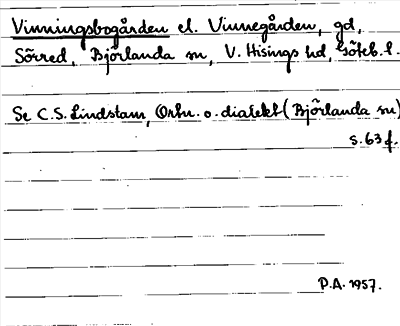 Vinningsbogården el. Vinnegården, gd,
Sörred, Björlanda sn, V. Hisings hd, Göteb. l.
Se C.S. Lindstam, Ortn. o. dialekt (Björlanda sn)
s. 63 f.
P.A. 1957.